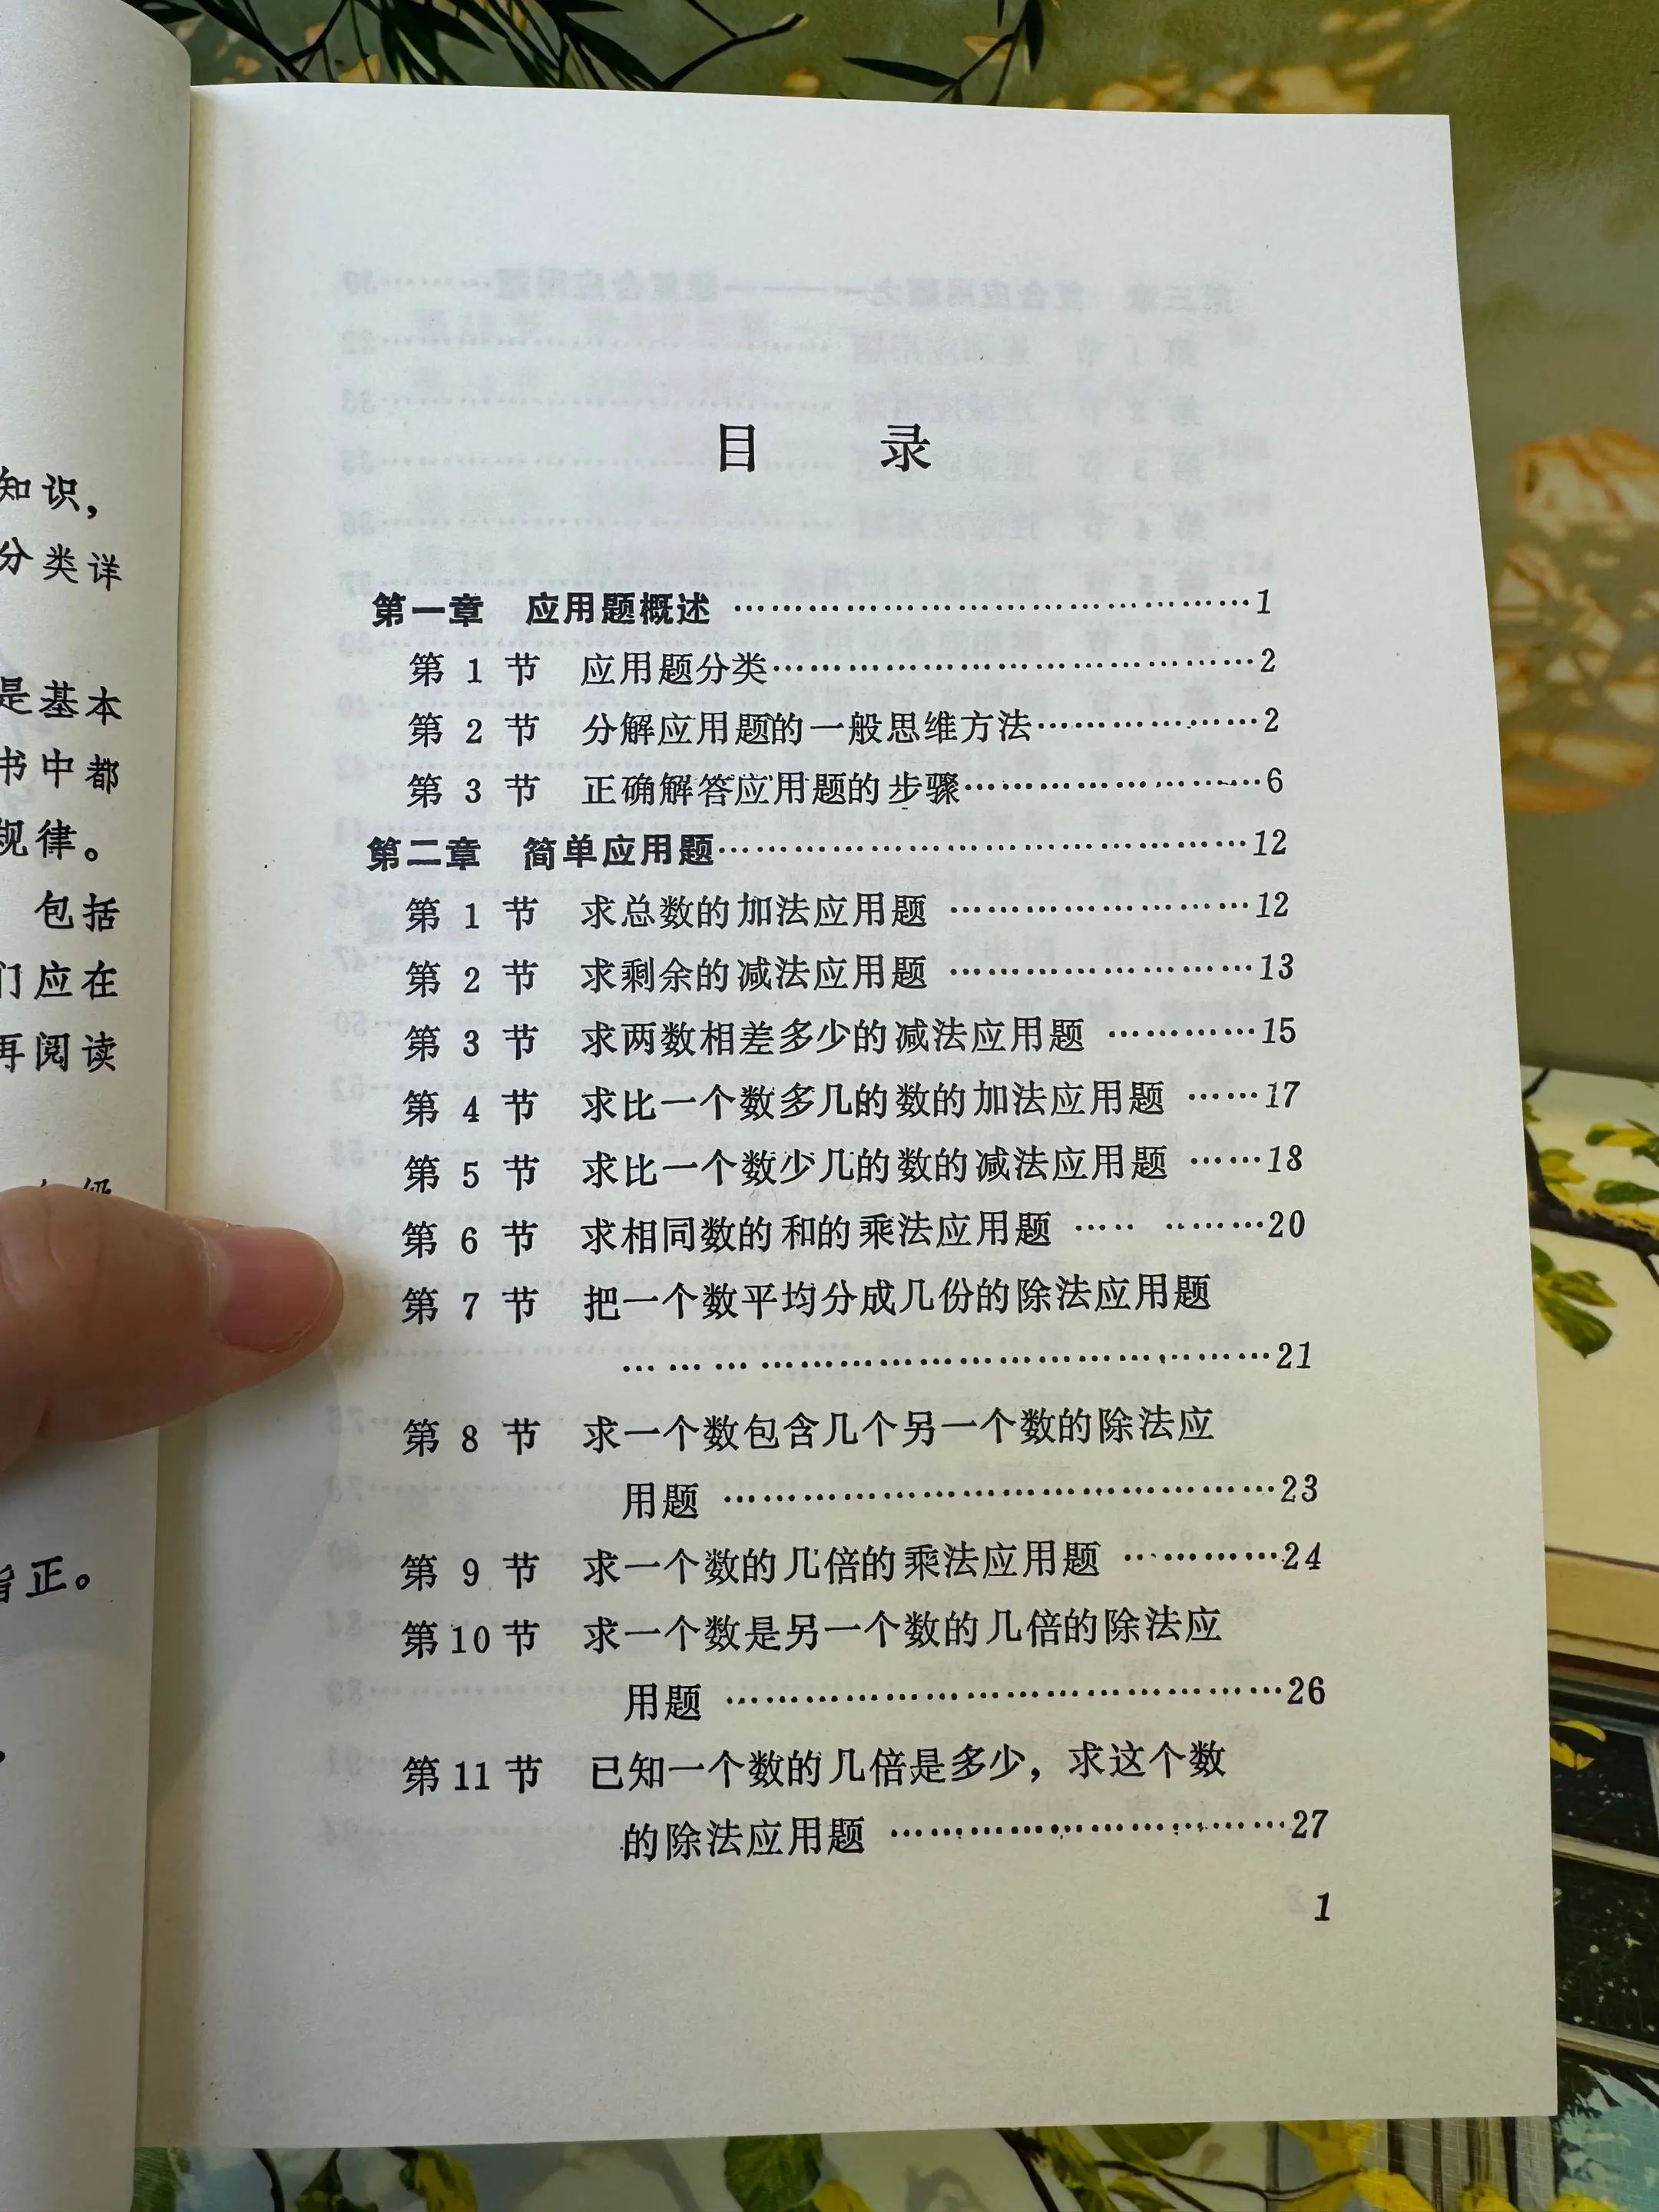 知识，
分类详
是基本
书中都
规律。
包括
们应在
再阅读
指正。
目 录
第一章 应用题概述 ……………………………………1
第 1 节 应用题分类……………………………………2
第 2 节 分解应用题的一般思维方法………………2
第 3 节 正确解答应用题的步骤……………………6
第二章 简单应用题……………………………………12
第 1 节 求总数的加法应用题 ……………………12
第 2 节 求剩余的减法应用题 ……………………13
第 3 节 求两数相差多少的减法应用题 …………15
第 4 节 求比一个数多几的数的加法应用题 ……17
第 5 节 求比一个数少几的数的减法应用题 ……18
第 6 节 求相同数的和的乘法应用题 ……………20
第 7 节 把一个数平均分成几份的除法应用题
……………………………………………21
第 8 节 求一个数包含几个另一个数的除法应
用题 ………………………………………23
第 9 节 求一个数的几倍的乘法应用题 …………24
第10节 求一个数是另一个数的几倍的除法应
用题 ………………………………………26
第11节 已知一个数的几倍是多少，求这个数
的除法应用题 ……………………………27
1